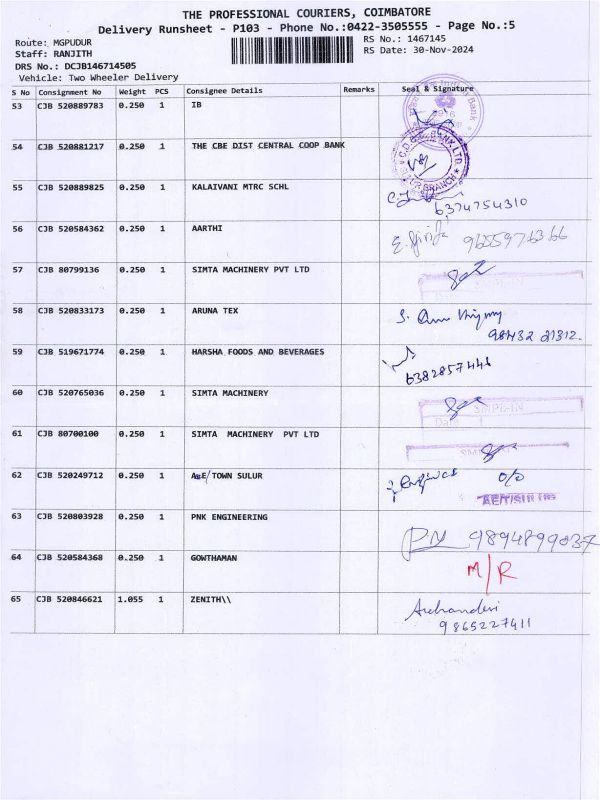 THE PROFESSIONAL COURIERS, COIMBATORE
Delivery Runsheet - P103 - Phone No.:0422-3505555 - Page No.:5
Route: MGPUDUR
RS No.: 1467145
Staff: RANJITH
RS Date: 30-Nov-2024
DRS No.: DCJB146714505
Vehicle: Two Wheeler Delivery
S No Consignment No Weight PCS Consignee Details Remarks Seal & Signature
53 CJB 520889783 0.250 1 IB
54 CJB 520881217 0.250 1 THE CBE DIST CENTRAL COOP BANK
55 CJB 520889825 0.250 1 KALAIVANI MTRC SCHL
6374754310
56 CJB 520584362 0.250 1 AARTHI
9655976366
57 CJB 80799136 0.250 1 SIMTA MACHINERY PVT LTD
58 CJB 520833173 0.250 1 ARUNA TEX
98432 21312.
59 CJB 519671774 0.250 1 HARSHA FOODS AND BEVERAGES
6382857446
60 CJB 520765036 0.250 1 SIMTA MACHINERY
61 CJB 80700100 0.250 1 SIMTA MACHINERY PVT LTD
62 CJB 520249712 0.250 1 AEE/TOWN SULUR
63 CJB 520803928 0.250 1 PNK ENGINEERING
PN 9894899037
64 CJB 520584368 0.250 1 GOWTHAMAN M/R
65 CJB 520846621 1.055 1 ZENITH\\
9865227411